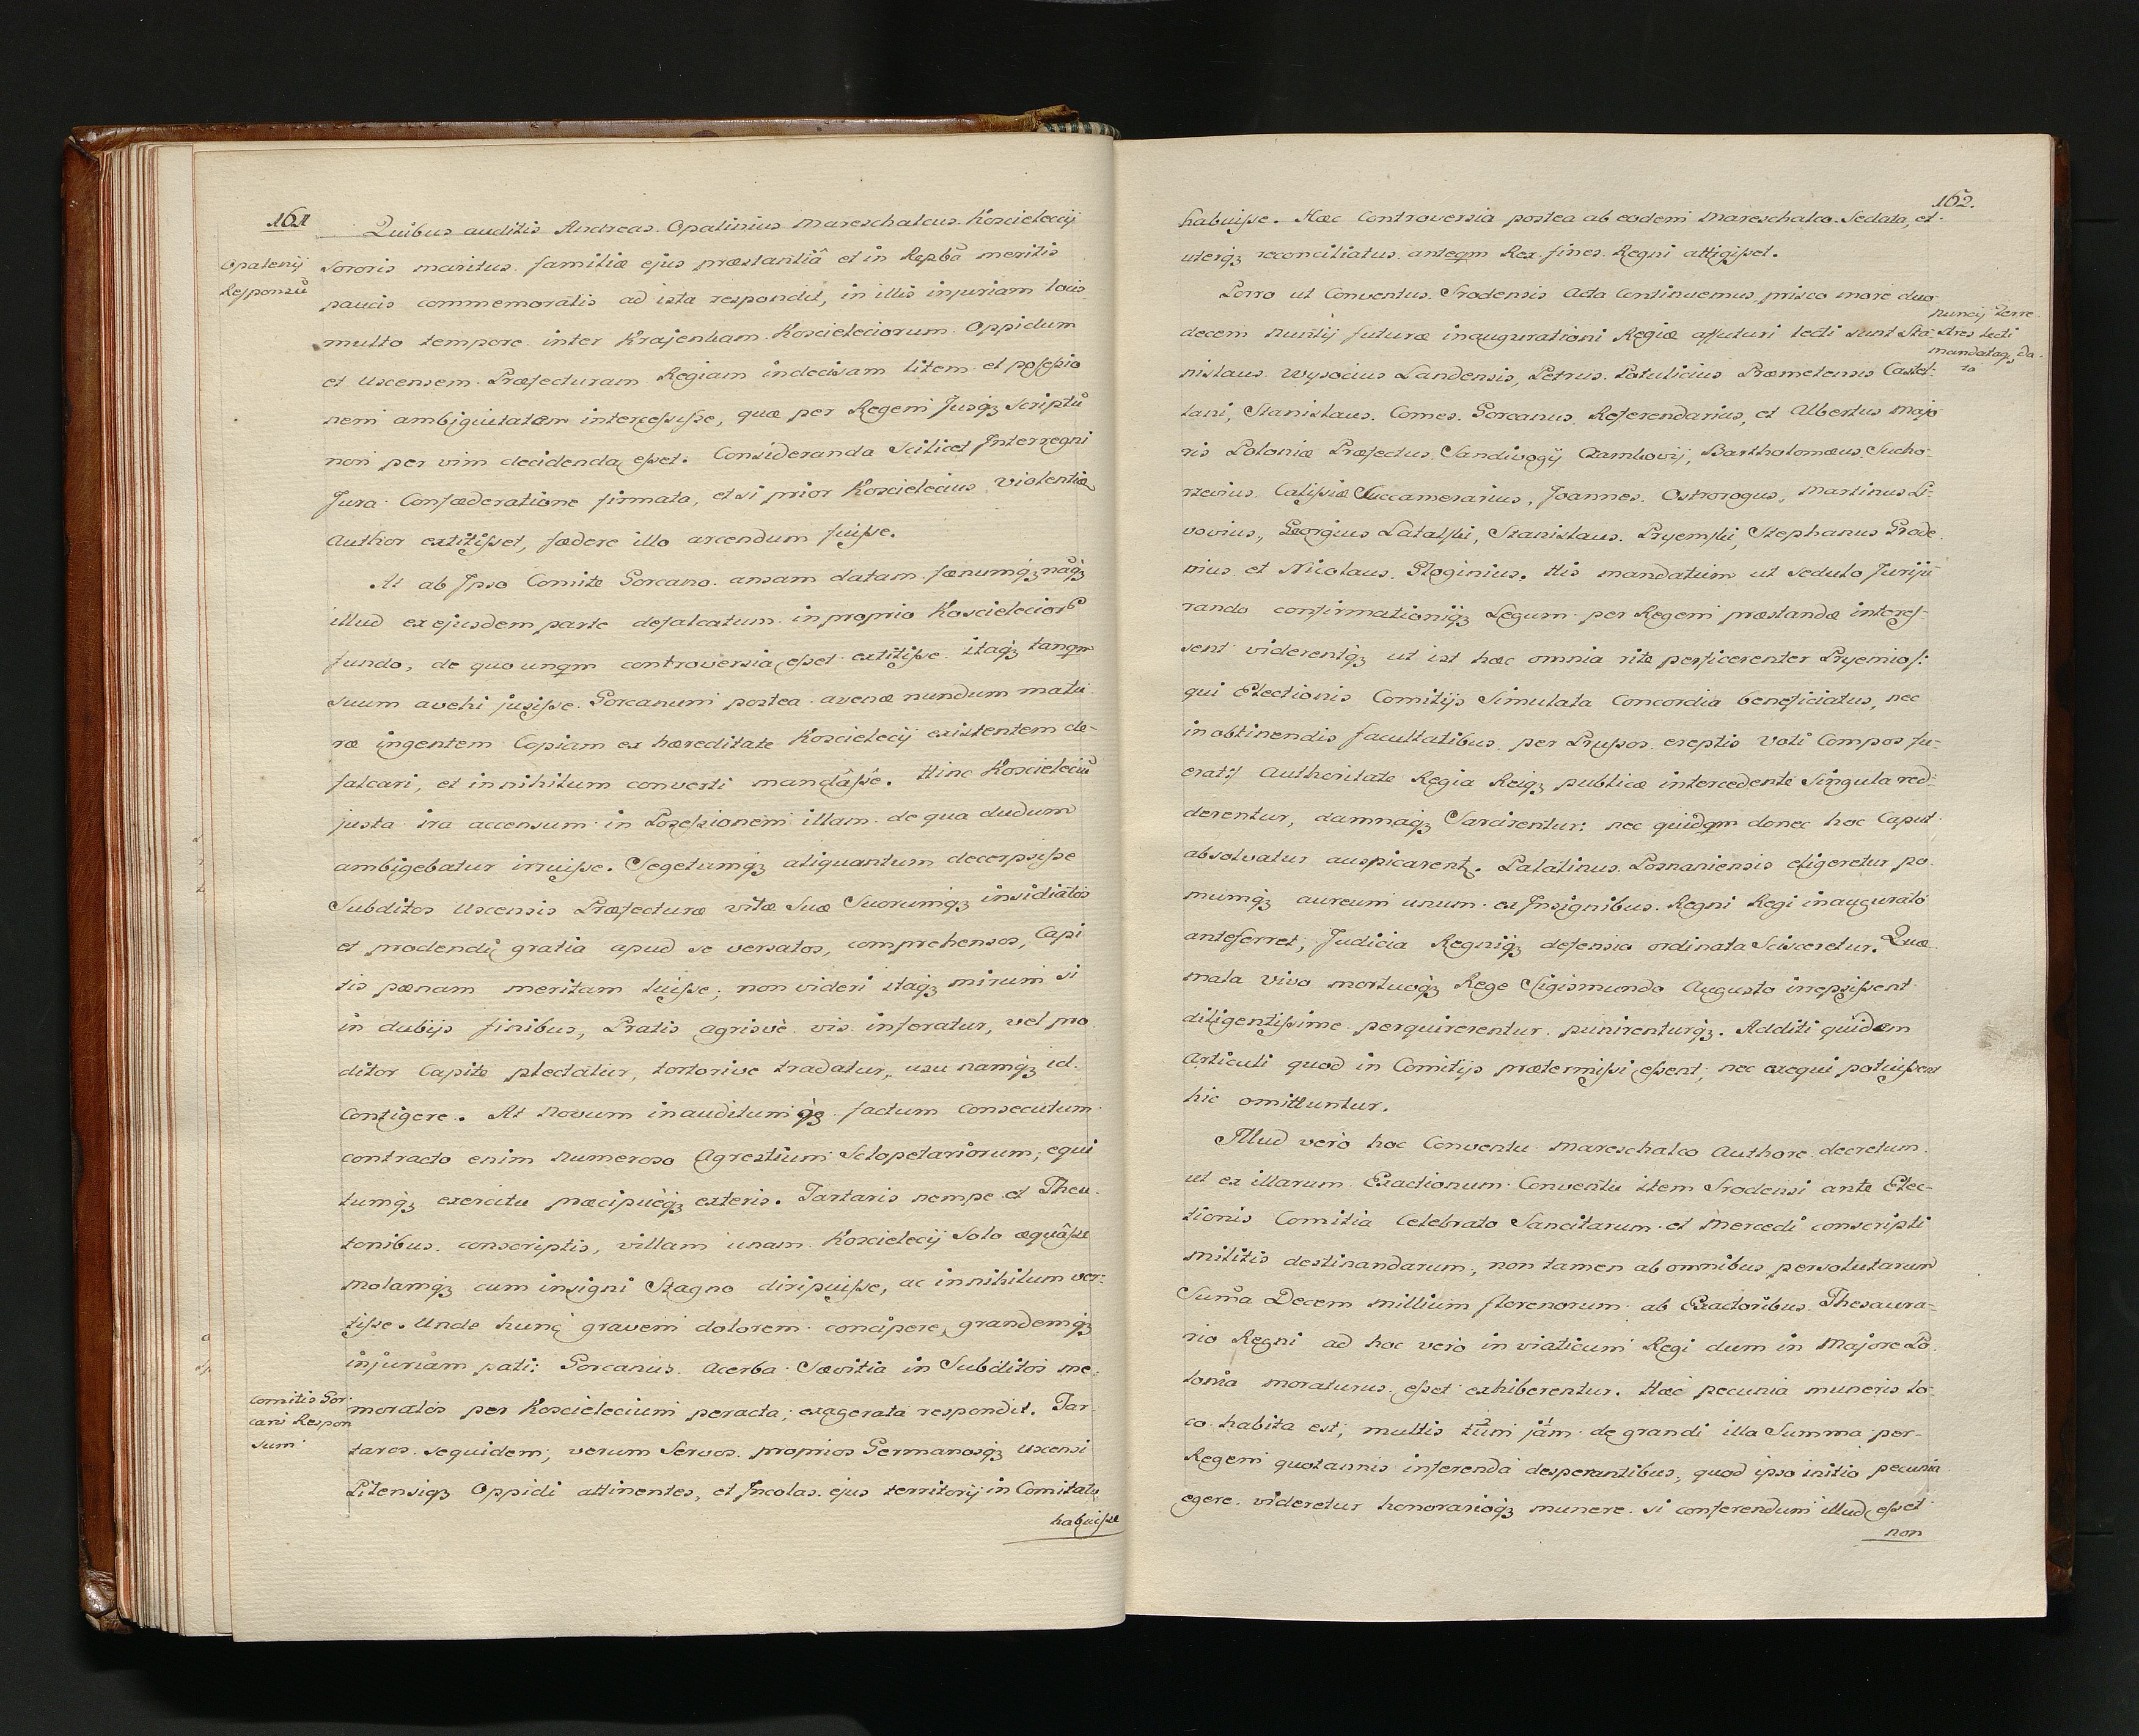 161
Opalenij
Responsū
Quibus auditis Andreas Opalinius Mareschalcus Koscielecij
Sororis maritus familiæ ejus præstantiâ et in Repb̃a meritis
paucis commemoratis ad ista respondit, in illis injuriam locis
multo tempore inter Krajenkam Koscieleciorum Oppidum
et Uscensem Præfecturam Regiam indecisam litem et possessio
nem ambiguitatem intercessisse, quæ per Regem Jusqꝫ scriptū
non per vim decidenda esset. Consideranda Scilicet Interregni
Jura Confœderatione firmata, et si prior Koscielecius violentiæ
Author extitisset, fœdere illo arcendum fuisse.
At ab Ipso Comite Gorcano ansam datam fœnumqꝫ nāqꝫ
illud ex ejusdem parte defalcatum in proprio Koscielecior
fundo, de quo unqm controversia esset extitisse itaqꝫ tanqm
suum avehi jusisse. Gorcanum postea avenæ nundum matu
ræ ingentem Copiam ex hæreditate Koscielecij existentem de-
falcari, et in nihilum converti mandâsse. Hinc Koscieleciū
justa ira accensum in Possessionem illam de qua dudum
ambigebatur irruisse. Segetumqꝫ aliquantum decerpsisse
Subditos Uscensis Præfecturæ vitæ Suæ Suorumqꝫ insidiatos
et prodendi gratia apud se versatos, comprehensos, Capi
tis pœnam meritam luisse; non videri itaqꝫ mirum si
in dubijs finibus, Pratis agrisvè vis inferatur, vel pro
ditor Capite plectatur, tortorive tradatur, usu namqꝫ id
Contigere. At Novum inauditumqꝫ factum consecutum
contracto enim Numeroso Agrestium Sclopetariorum, equi
tumqꝫ exercitu præcipuèqꝫ exteris. Tartaris nempe et Theu
tonibus conscriptis, villam unam Koscielecij Solo æquâsse
Molamqꝫ cum insigni Stagno diripuisse, ac in nihilum ver-
tisse. Unde hunc gravem dolorem concipere, grandemqꝫ
injuriam pati: Gorcanus Acerba Sævitia in Subditos me-
Comitis Gor
cani Respon
sum
moratos per Koscielecium peracta, exagerata respondit. Tar
taros sequidem, verum Servos proprios Germanosqꝫ Uscensi
Pilensiqꝫ Oppidi attinentes, et Incolas ejus territorij in Comitatu
habuisse
162.
habuisse. Hæc Controversia postea ab eodem Mareschalco Sedata, et
uterqꝫ reconciliatus anteqm Rex fines Regni attigisset.
Porro ut Conventus Srodensis Acta Continuemus, prisco more duo
Nuncij Terre
stres lecti
mandataqꝫ da
ta
decem Nuntij futuræ inaugurationi Regiæ affuturi lecti sunt Sta
nislaus Wysocius Landensis, Petrus Potulicius Præmetensis Castel-
lani, Stanislaus Comes Gorcanus Referendarius, et Albertus Majo
ris Poloniæ Præfectus Sandivogij Czarnkovij, Bartholomæus Sucho-
rzevius Calissiæ Succamerarius, Joannes Ostrorogus, Martinus Li-
vovius, Georgius Latalski, Stanislaus Pryemski, Stephanus Grode
rius et Nicolaus Gloginius. His mandatum ut sedulo Juriju
rando confirmationiqꝫ Legum per Regem præstandæ interes-
sent viderentqꝫ ut ist hæc omnia rite perficerenter Pryemio/:
qui Electionis Comitijs Simulata Concordia beneficiatus, nec
in obtinendis facultatibus per Prussos ereptis Voti Compos fu-
erat:/ Authoritate Regia Reiqꝫ publicæ intercedente Singula red-
derentur, damnaqꝫ Sarcirentur: nec quidqm donec hoc Caput
absolvatur auspicarent. Palatinus Posnaniensis eligeretur po
mumqꝫ aureum unum ex Insignibus Regni Regi inaugurato
anteferret, Judicia Regniqꝫ defensio ordinata Scisceretur. Quæ
mala vivo mortuoqꝫ Rege Sigismundo Augusto irrepsissent
diligentissime perquirerentur punirenturqꝫ. Additi quidem
Articuli quod in Comitijs prætermissi essent, nec exequi potuissent
hic omittuntur.
Illud verò hoc Conventu Mareschalco Authore decretum
ut ex illarum Exactionum Conventu item Srodensi ante Elec-
tionis Comitia Celebrato Sancitarum et Mercedi conscripti
Militis destinandarum, non tamen ab omnibus persolutarum
Sum̃a Decem Millium florenorum ab Exactoribus Thesaura-
rio Regni ad hoc verò in viaticum Regi dum in Majore Po
lonia moraturus esset exhiberentur. Hæc pecunia muneris lo-
co habita est; multis tum jam de grandi illa Summa per-
Regem quotannis inferenda desperantibus, quod ipso initio pecunia
egere videretur honorarioqꝫ munere si conferendum illud esset
non